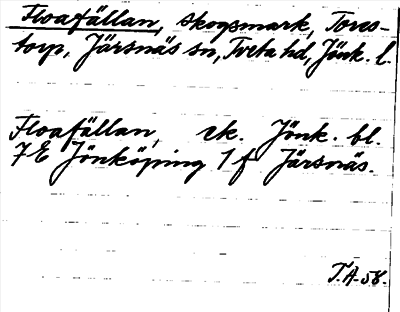 Floafällan, skogsmark, Tores-
torp, Järsnäs sn, Tveta hd, Jönk. l.
Floafällan, ek. Jönk. bl.
7E Jönköping 1 f Järsnäs.
T.A-58.